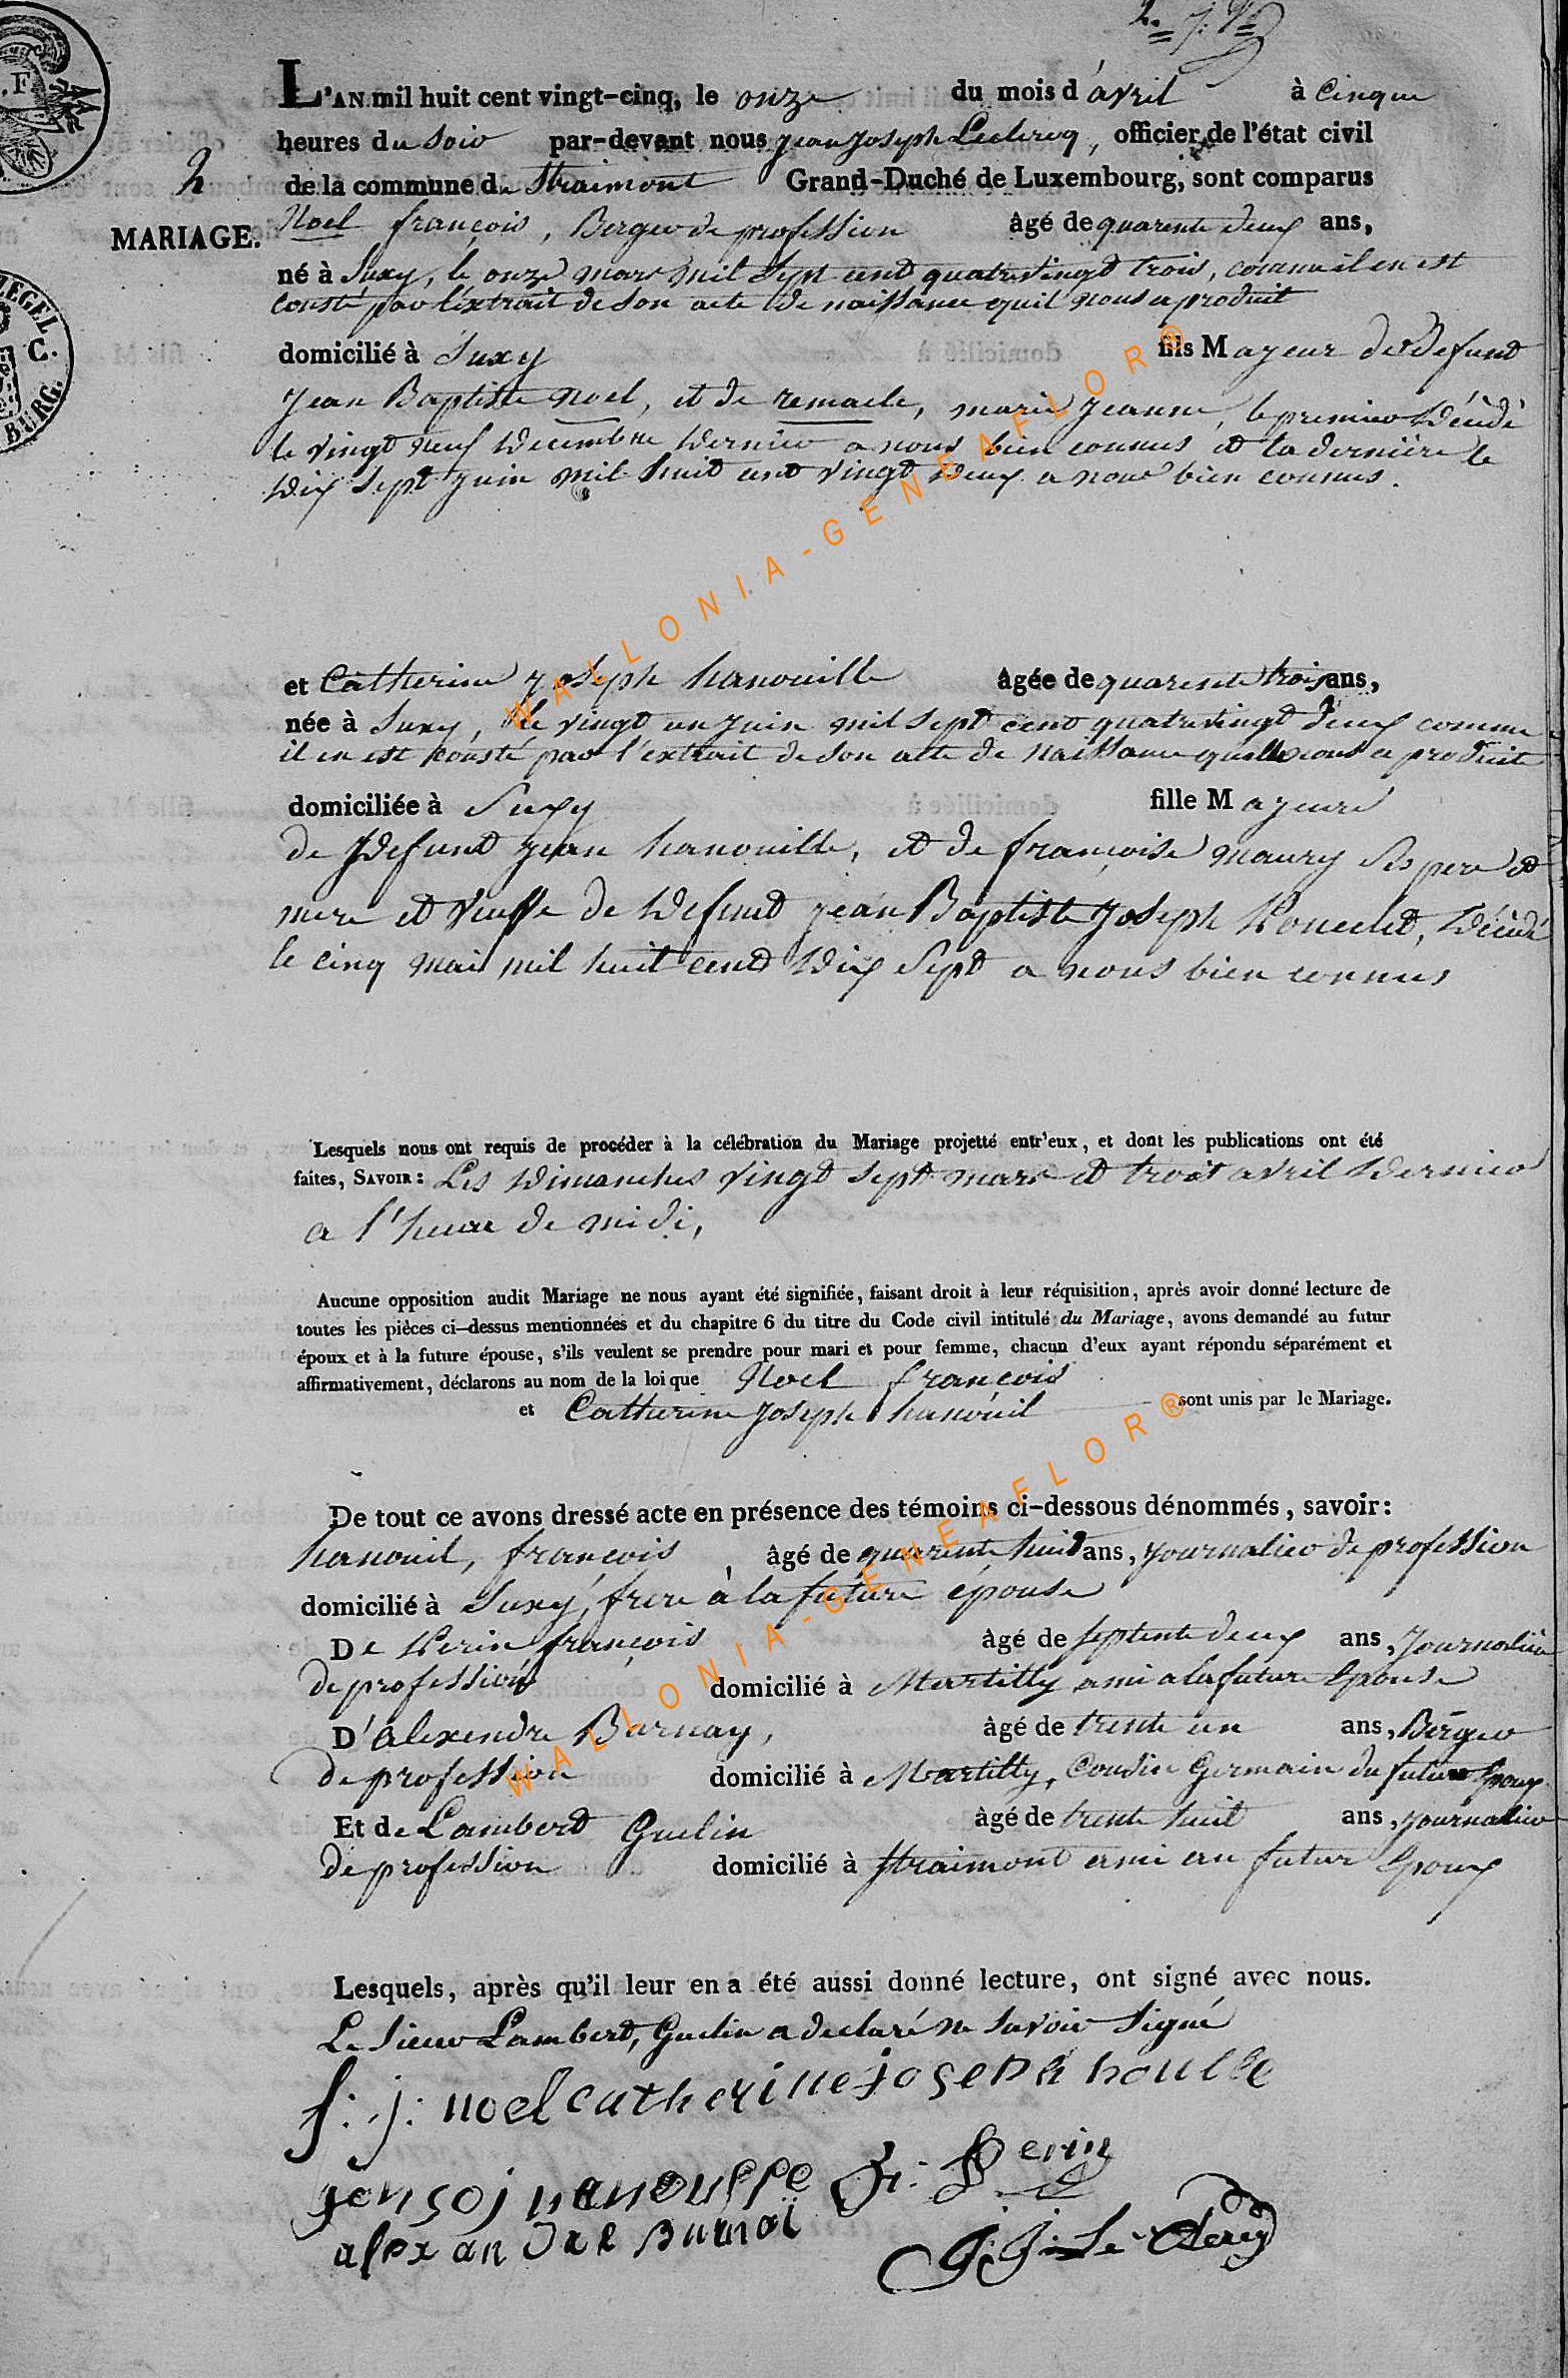 L'AN mil huit cent vingt-cinq, le onze du mois d'avril à Cinque
heures du Soir par-devant nous jean joseph Leclercq, officier de l'état civil
2 de la commune de Straimont Grand-Duché de Luxembourg, sont comparus
MARIAGE. Noel françois, Berger de profession âgé de quarente deux ans,
né à Suxy, le onze mars mil sept cent quatrevingt trois, comme il en est
consté par l'extrait de son acte de naissance quil nous a produit
domicilié à Suxy fils Majeur de defunt
jean Baptiste noel, et de remacle, marie jeanne, le premier décédé
le vingt neuf decembre dernier a nous bien connus et la dernière le
dix sept juin mil huit cent vingt deux a nous bien connus.
et Catherine joseph hanouille âgée de quarente trois ans,
née à Suxy, le vingt un juin mil sept cent quatrevingt deux comme
il en est consté par l'extrait de son acte de naissance quelle nous a produit
domiciliée à Suxy fille Majeure
de defunt jean hanouille, et de françoise maury ses pere et
mere et veuffe de defunt jean Baptiste joseph décédé
le cinq mai mil huit cent dix sept a nous bien connus
Lesquels nous ont requis de procéder à la célébration du Mariage projetté entr'eux, et dont les publications ont été
faites, SAVOIR : Les dimanches vingt sept mars et trois avril dernier
a l'heure de midi,
Aucune opposition audit Mariage ne nous ayant été signifiée, faisant droit à leur réquisition, après avoir donné lecture de
toutes les pièces ci-dessus mentionnées et du chapitre 6 du titre du Code civil intitulé du Mariage, avons demandé au futur
époux et à la future épouse, s'ils veulent se prendre pour mari et pour femme, chacun d'eux ayant répondu séparément et
affirmativement, déclarons au nom de la loi que Noel françois
et Catherine joseph hanouil sont unis par le Mariage.
De tout ce avons dressé acte en présence des témoins ci-dessous dénommés, savoir:
hanouil, françois, âgé de quarente huit ans, journalier de profession
domicilié à Suxy, frere à la future épouse
De Perin françois âgé de septente deux ans, journalier
de profession domicilié à Martilly ami a la future Epouse
D'Alexendre Burnay, âgé de trente un ans, Berger
de profession domicilié à Martilly, Cousin Germain du futur Epoux
Et de Lambert Guelin âgé de trente huit ans, journalier
de profession domicilié à Straimont ami au futur Epoux
Lesquels, après qu'il leur en a été aussi donné lecture, ont signé avec nous.
Le Sieur Lambert, Guelin a declaré ne savoir Signé
f: j: noel catherine joseph
hanouille Perin
alexandre Burnaÿ J: J: Le Clercq
WALLONIA-GENEAFLOR®
WALLONIA-GENEAFLOR®